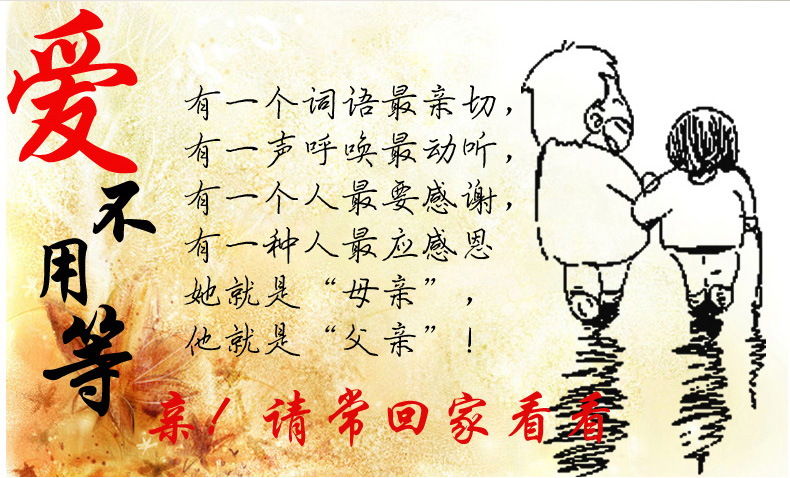 爱不用等
有一个词语最亲切，
有一声呼唤最动听，
有一个人最要感谢，
有一种人最应感恩
她就是“母亲”，
他就是“父亲”！
亲！请常回家看看